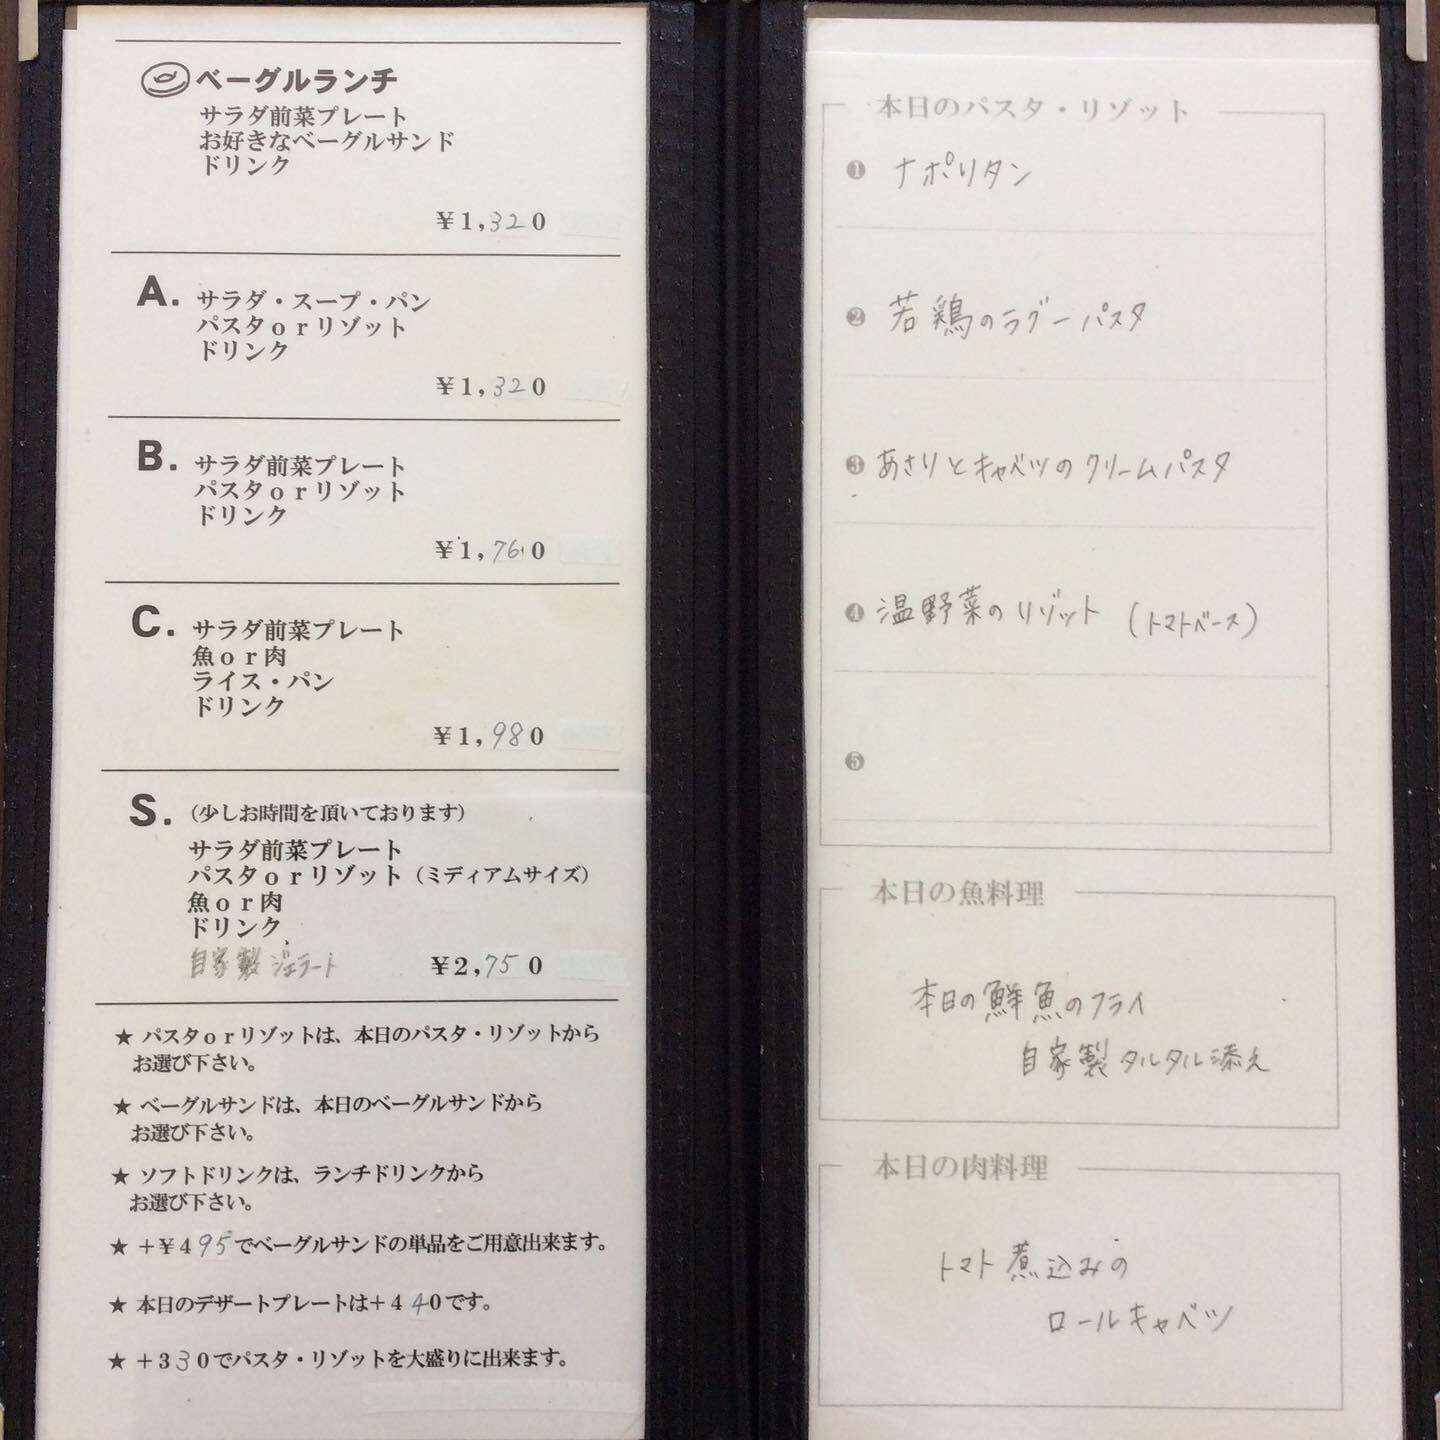 ベーグルランチ
サラダ前菜プレート
お好きなベーグルサンド
ドリンク
¥1,320
A. サラダ・スープ・パン
パスタorリゾット
ドリンク
¥1,320
B. サラダ前菜プレート
パスタorリゾット
ドリンク
¥1,760
C. サラダ前菜プレート
魚or肉
ライス・パン
ドリンク
¥1,980
S. (少しお時間を頂いております)
サラダ前菜プレート
パスタorリゾット(ミディアムサイズ)
魚or肉
ドリンク
自家製ジェラート ¥2,750
★ パスタorリゾットは、本日のパスタ・リゾットから
お選び下さい。
★ ベーグルサンドは、本日のベーグルサンドから
お選び下さい。
★ ソフトドリンクは、ランチドリンクから
お選び下さい。
★ +¥495でベーグルサンドの単品をご用意出来ます。
★ 本日のデザートプレートは+440です。
★ +330でパスタ・リゾットを大盛りに出来ます。
本日のパスタ・リゾット
❶ ナポリタン
❷ 若鶏のラグーパスタ
❸ あさりとキャベツのクリームパスタ
❹ 温野菜のリゾット (トマトベース)
❺
本日の魚料理
本日の鮮魚のフライ
自家製タルタル添え
本日の肉料理
トマト煮込みの
ロールキャベツ